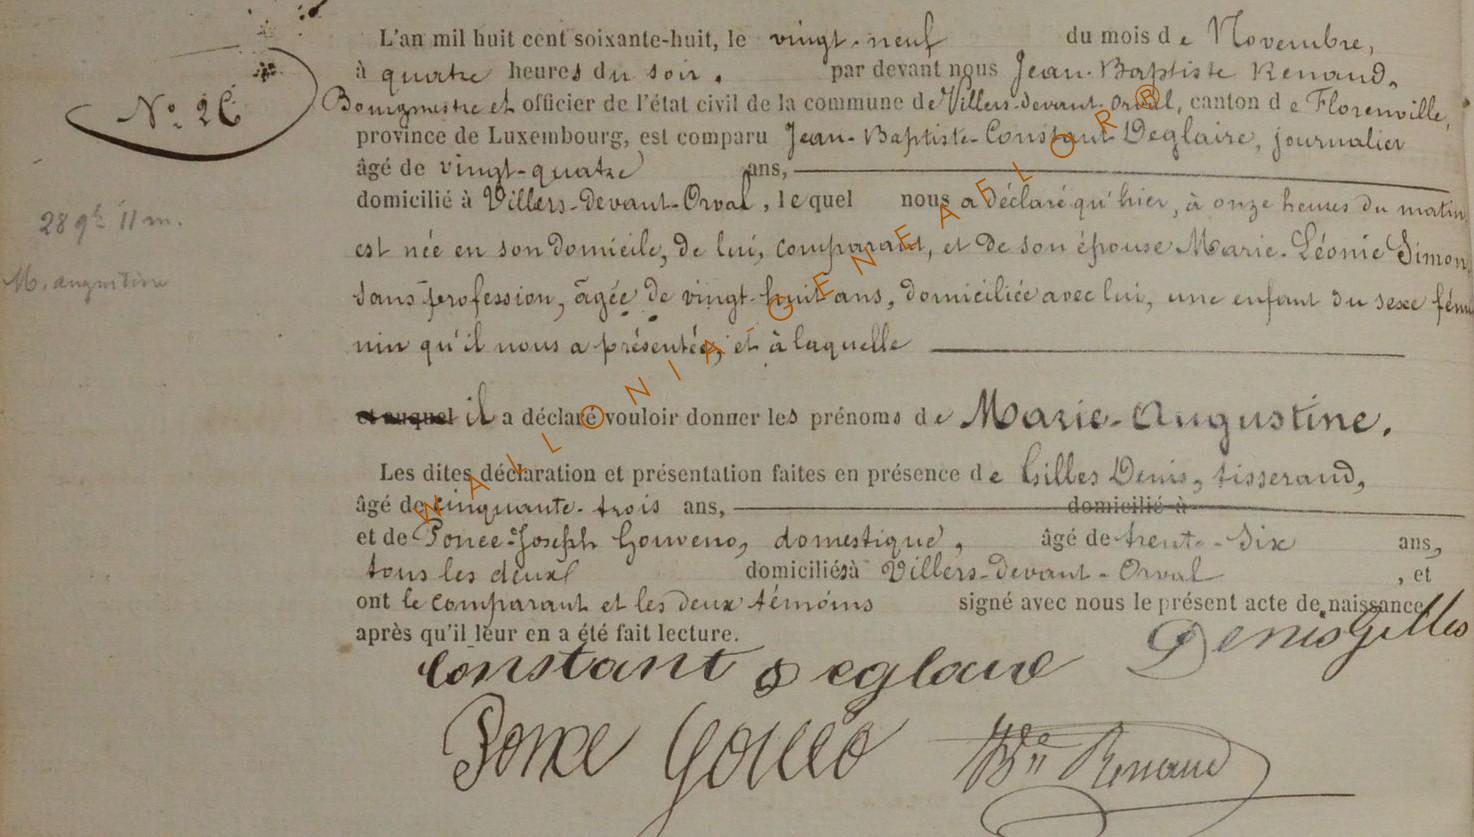 L'an mil huit cent soixante-huit, le vingt-neuf du mois de Novembre,
à quatre heures du soir. par devant nous Jean-Baptiste Renaud,
Bourgmestre et officier de l'état civil de la commune de Villers-devant-Orval, canton de Florenville,
N° 26
province de Luxembourg, est comparu Jean-Baptiste-Constant Deglaire, journalier
âgé de vingt-quatre ans,
domicilié à Villers-devant-Orval, lequel nous a déclaré qu'hier, à onze heures du matin
28 9bre 11 m.
est née en son domicile, de lui, comparant, et de son épouse Marie-Léonie Simon,
M. augustine
sans profession, âgée de vingt-huit ans, domiciliée avec lui, une enfant du sexe fémi
nin qu'il nous a présentée, et à laquelle
et auquel il a déclaré vouloir donner les prénoms de Marie-Augustine.
Les dites déclaration et présentation faites en présence de Gilles Denis, tisserand,
âgé de cinquante-trois ans, domicilié à
et de Ponce-Joseph domestique, âgé de trente-six ans,
tous les deux domiciliés à Villers-devant-Orval, et
ont le comparant et les deux témoins signé avec nous le présent acte de naissance
après qu'il leur en a été fait lecture.
Constant Deglaire Denis Gilles
Ponce Renaud
WALLONIA GENEALOR ®